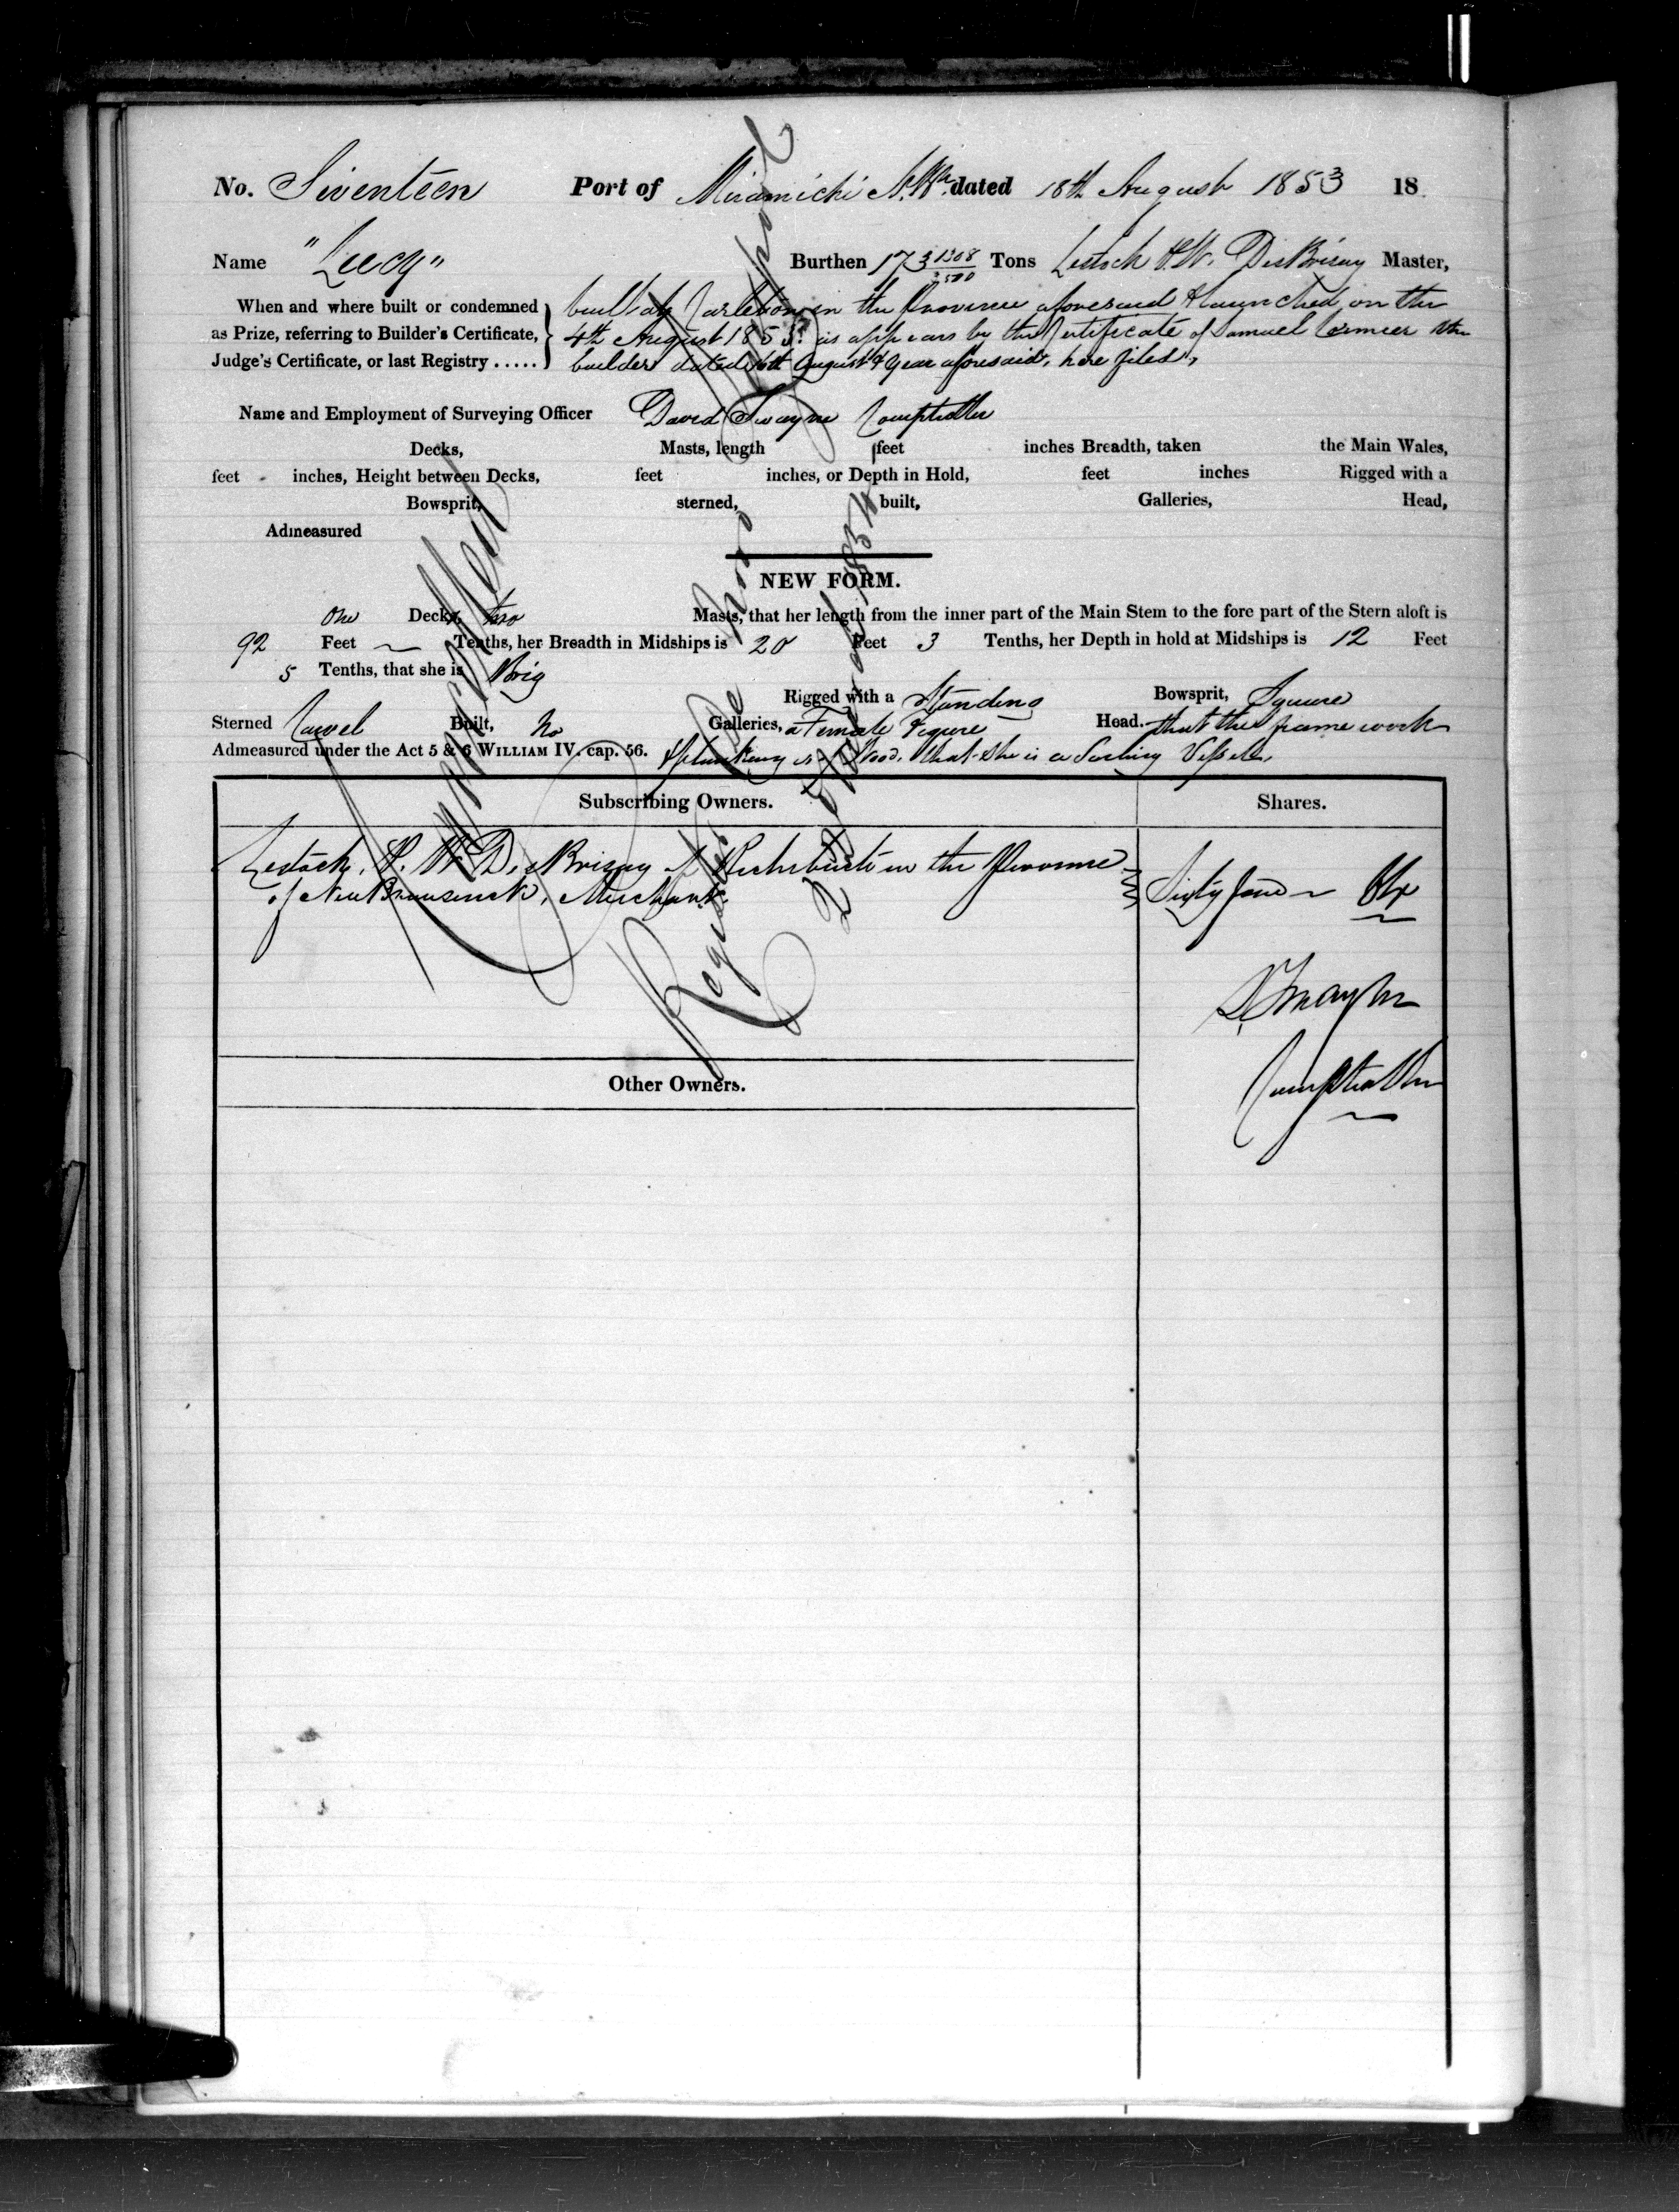 No. Seventeen Port of Miramichi N.Bk. dated 18th August 1853 18
Name "Lucy" Burthen 173 1308/3500 Tons Lestock P.W. DesBrisay Master,
When and where built or condemned as Prize, referring to Builder's Certificate, Judge's Certificate, or last Registry .....
built at Carleton in the Province aforesaid & launched on the
4th August 1853. as appears by the Certificate of Samuel Cormier the
builder dated 16th August & year aforesaid, here filed,
Name and Employment of Surveying Officer David Swayne Comptroller
Decks, Masts, length feet inches Breadth, taken the Main Wales,
feet inches, Height between Decks, feet inches, or Depth in Hold, feet inches Rigged with a
Bowsprit, sterned, built, Galleries, Head,
Admeasured
NEW FORM.
One Decks, two Masts, that her length from the inner part of the Main Stem to the fore part of the Stern aloft is
92 Feet ~ Tenths, her Breadth in Midships is 20 Feet 3 Tenths, her Depth in hold at Midships is 12 Feet
5 Tenths, that she is Brig Rigged with a Standing Bowsprit, Square
Sterned Carvel Built, No Galleries, a Female Figure Head. that the frame work
Admeasured under the Act 5 & 6 WILLIAM IV. cap. 56. & planking is Wood, that she is a Sailing Vessel,
Subscribing Owners. Shares.
Lestock, P. W. DesBrisay of Richibucto in the Province
of New Brunswick, Merchant Sixty four ~ 64
D. Swayne
Comptroller
Other Owners.
Cancelled
Registered De Novo